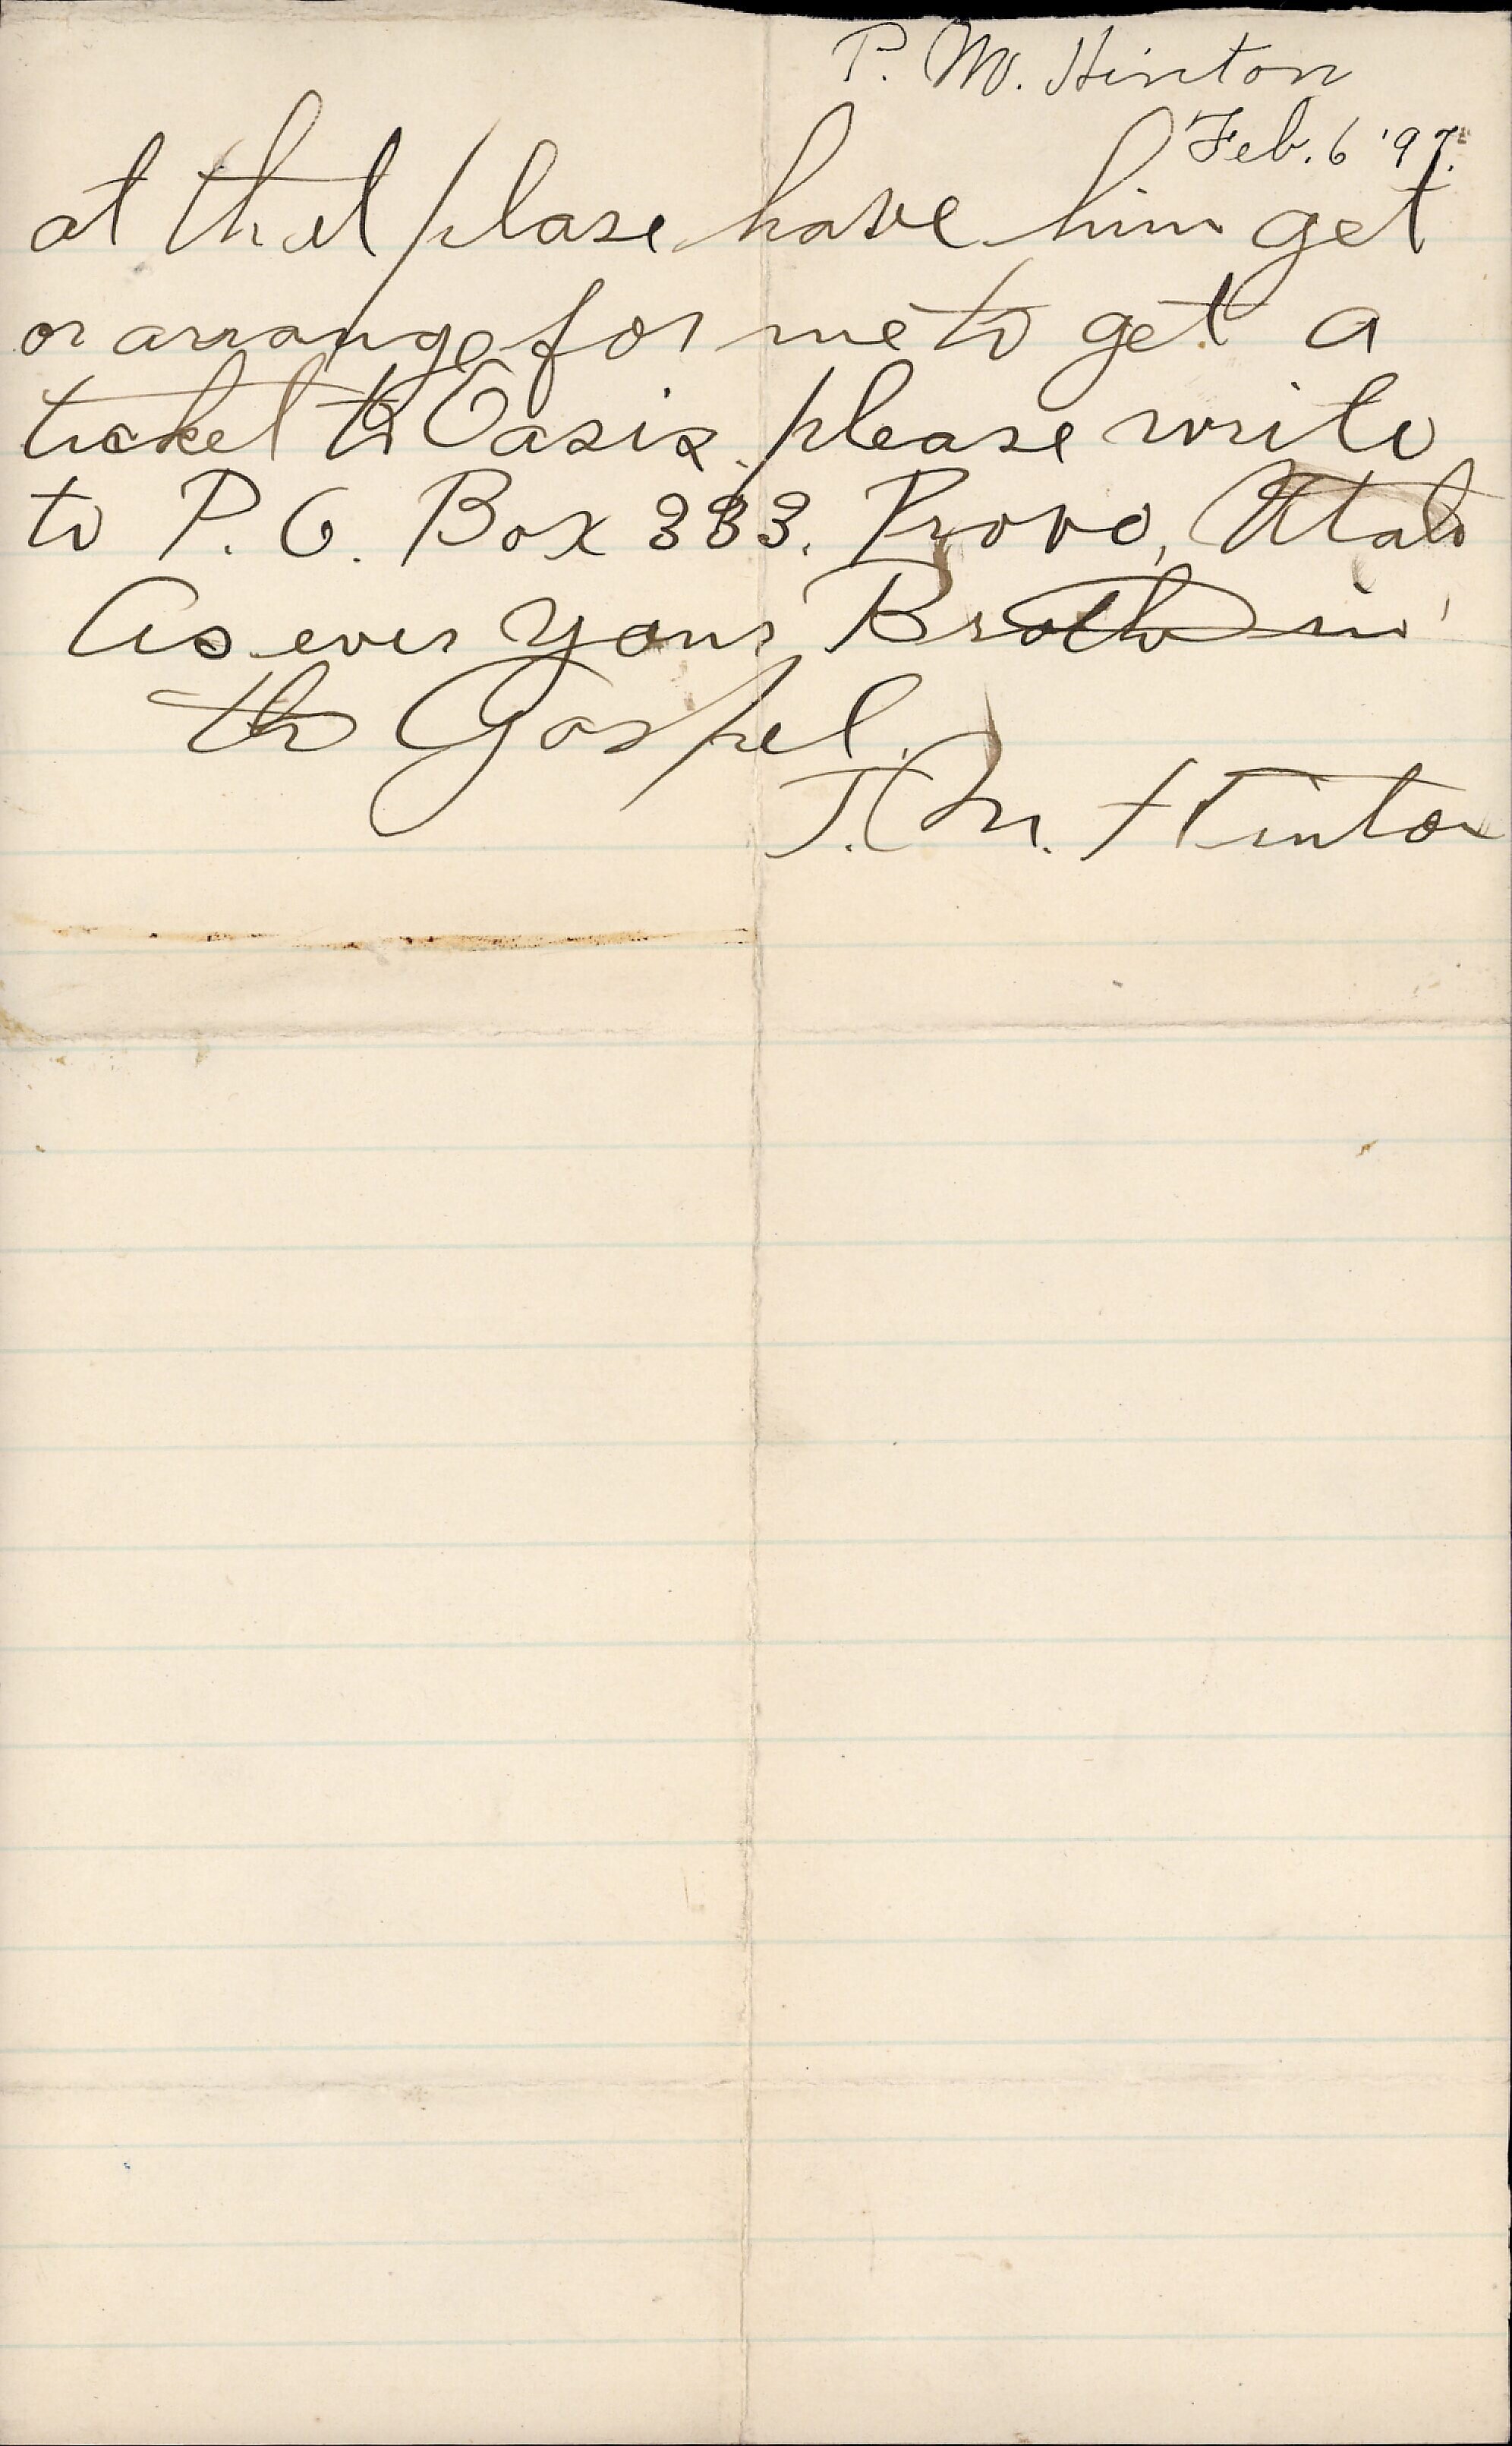 P. M. Hinton
Feb. 6 '97.
at that plase have him get
or arrange for me to get a
ticket to Oasis please write
to P. O. Box 333. Provo, Utah
As ever your Brother in
the Gospel.
J. M. Hinton